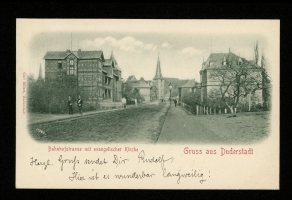 Bahnhofstrasse mit evangelischer Kirche
Gruss aus Duderstadt
Herzl. Gruss sendet Dir Rudolf.
Hier ist es wunderbar langweilig!